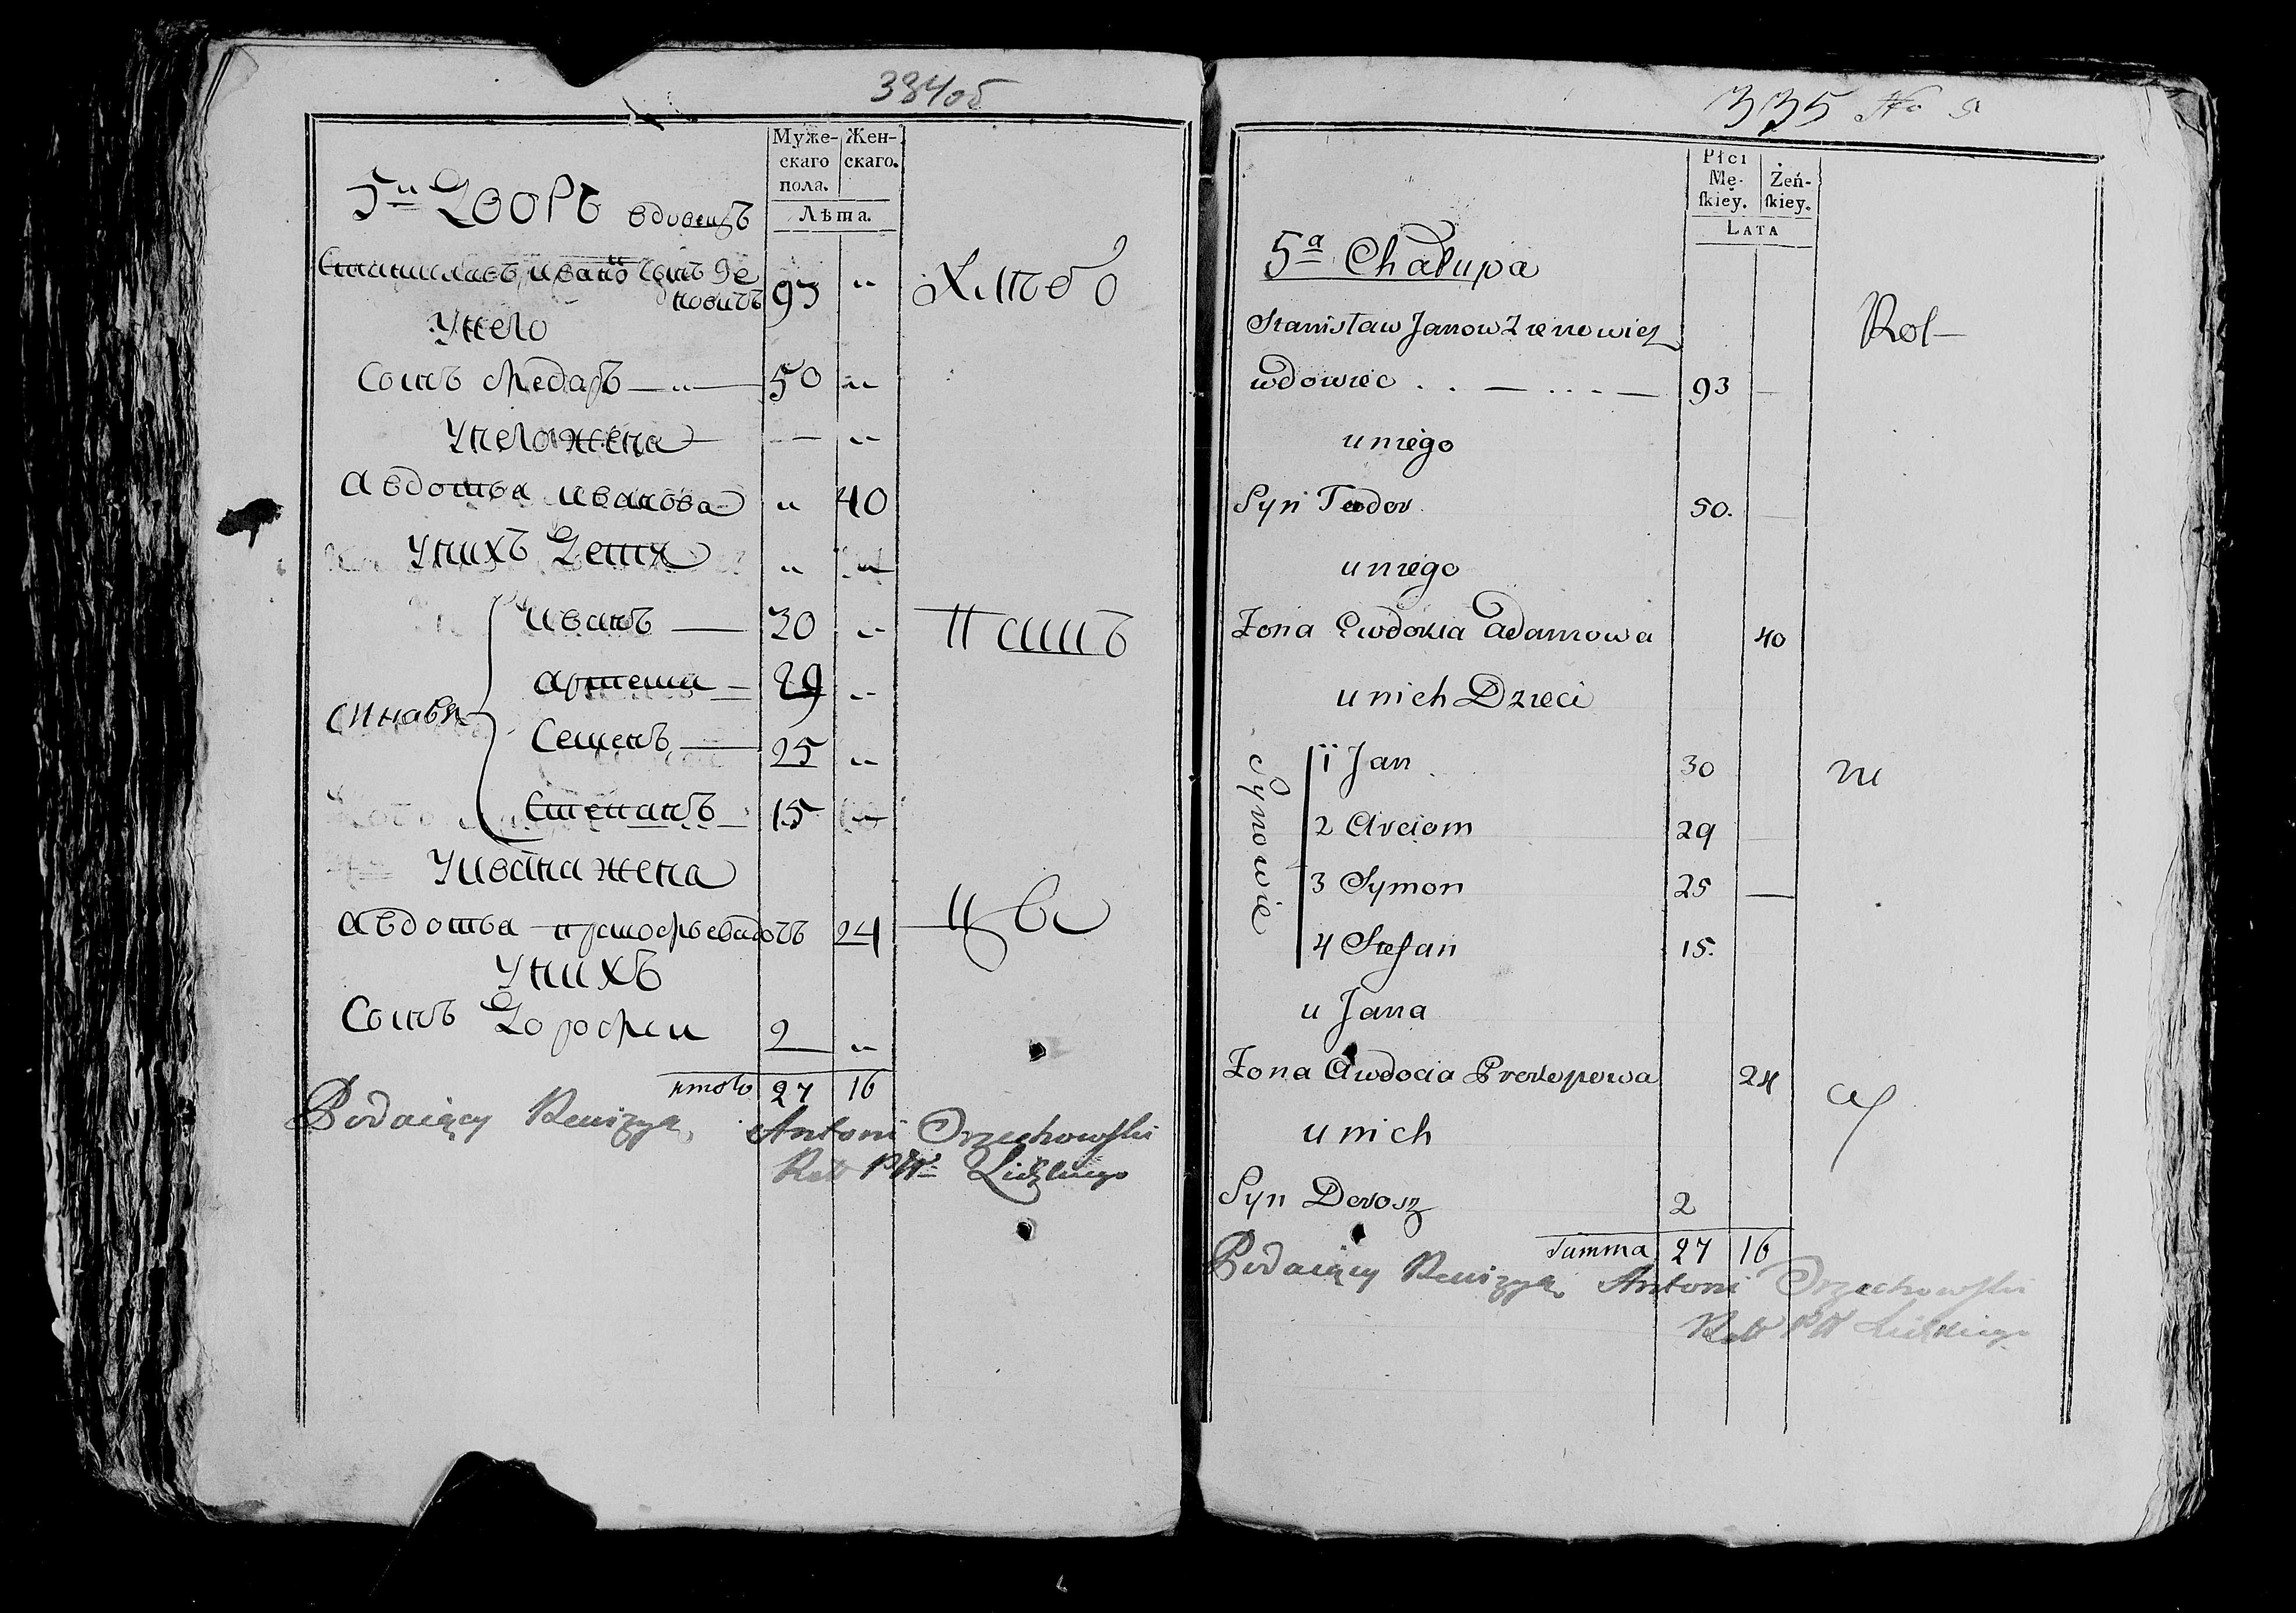 334об
Муже-
скаго
пола.
Жен-
скаго.
Лѣта.
5й Дворъ вдовецъ
Станиславъ Ивано Сынъ Зе
новичъ 93 „
Хлѣбо
Унего
Сынъ Федаръ — „ — 50 „
Унего жена — „
Авдотьа Иванова „ 40
Унихъ Детя „ „
Иванъ — 30 „
Пашъ
Артеми — 29 „
Синавя
Семенъ — 25 „
Степанъ 15 „
Уивана жена
Авдотьа 24
цы
Унихъ
Сынъ Дорофеи 2 „
итого 27 16
Podaiący Rewizyą Antoni Orzechowski
Rott PW Lidzkiego
335 No 5
Płci
Mę-
ſkiey.
Żeń-
ſkiey.
LATA
5a Chałupa
Stanisław Janow Zienowicz
Rol—
wdowiec . . — . . . — 93 —
u niego
Syn Teodor 50. —
u niego
Żona Ewdokia Adamowa 40
u nich Dzieci
Synowie
1 Jan 30
ni
2 Arciom 29 —
3 Symon 25 —
4 Stefan 15.
u Jana
Żona Awdocia Prokopowa 24
cy
u nich
Syn Dorosz 2
Summa 27 16
Podaiący Rewizyą Antoni Orzechowski
Rott PW Lidzkiego